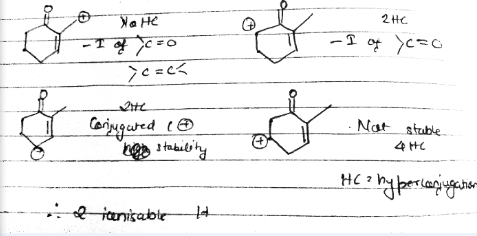 O O
⊕ No HC ⊕ 2HC
- I of >C=O - I of >C=O
>C=C<
O 2HC O
Conjugated C⊕ Not stable
stability ⊕ 4HC
HC = hyperconjugation
∴ 2 ionisable H